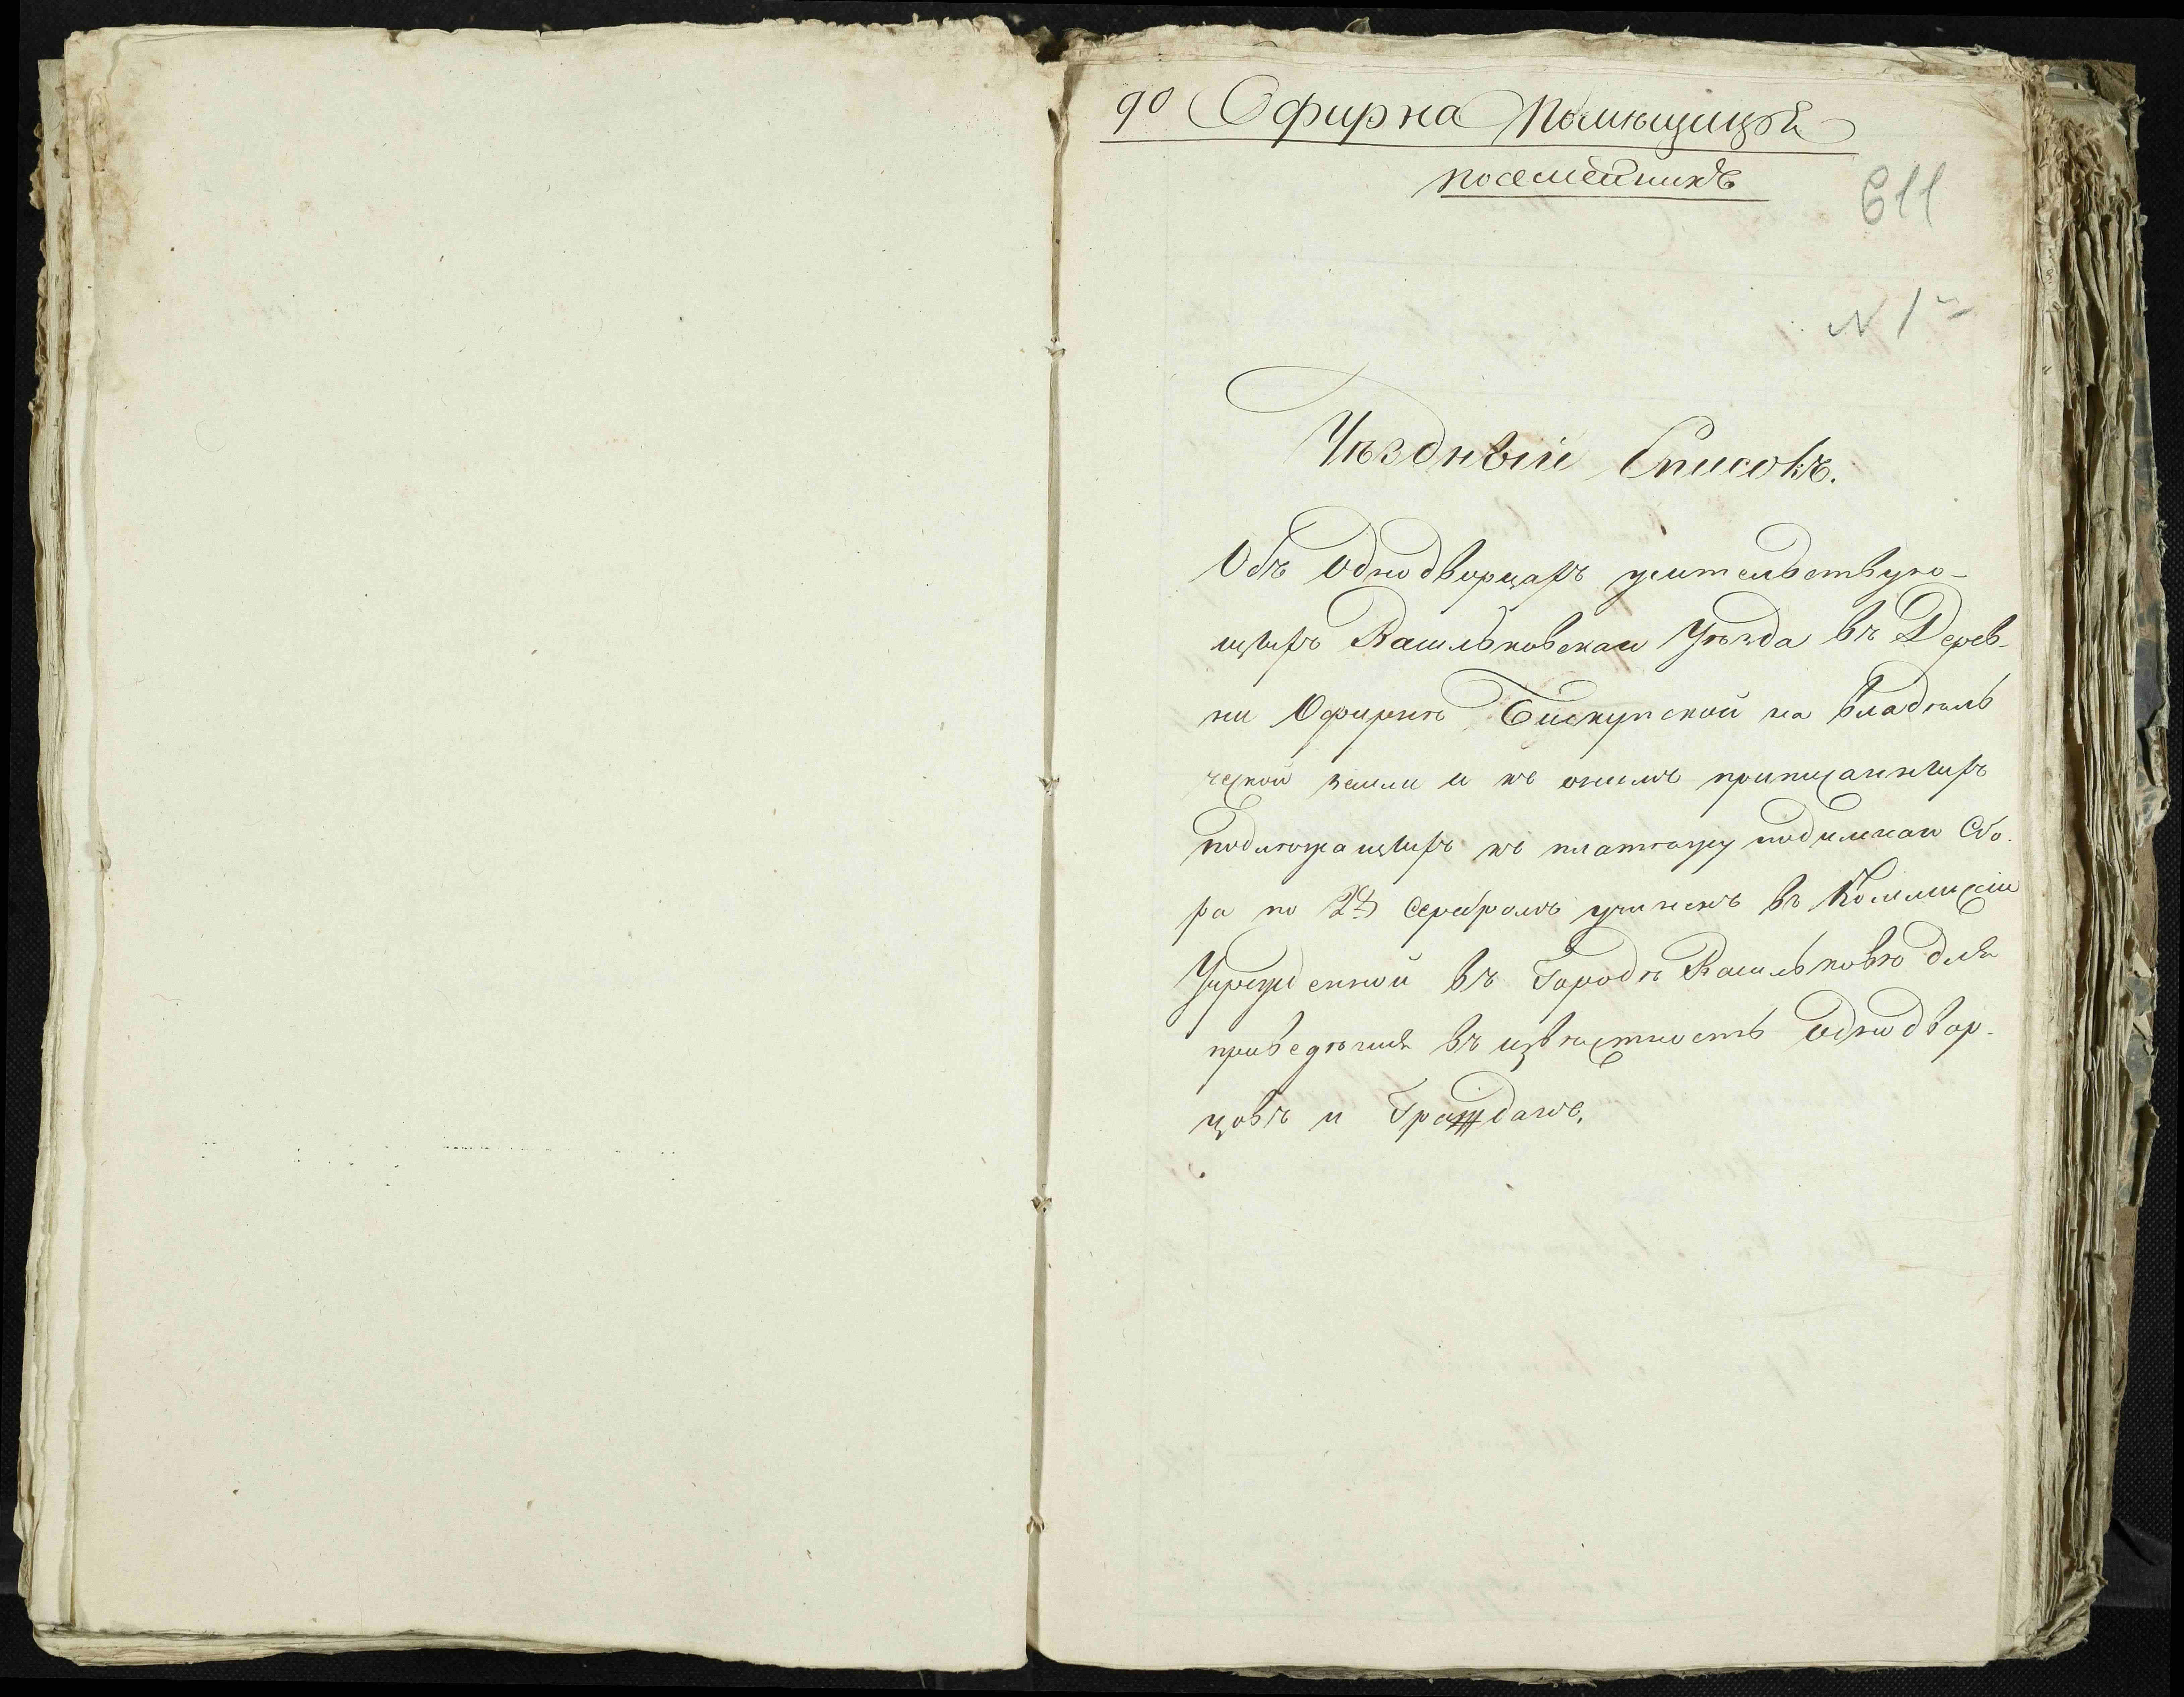 90 Офирна Помѣщицкой
посемейникъ
611
N 1й
Уѣздный Списокъ.
Объ Однодворцахъ жительствую-
щихъ Васильковскаго Уѣзда въ Дерев-
ни Офирнѣ Бискупской на владѣль
ческой земли и къ онымъ приписанныхъ
подлежащихъ къ платежу подымнаго Сбо-
ра по 2 серебромъ учиненъ въ Коммисіи
Учрежденной въ Городѣ Васильковѣ для
приведѣния въ извѣстность однодвор-
цовъ и Гражданъ.